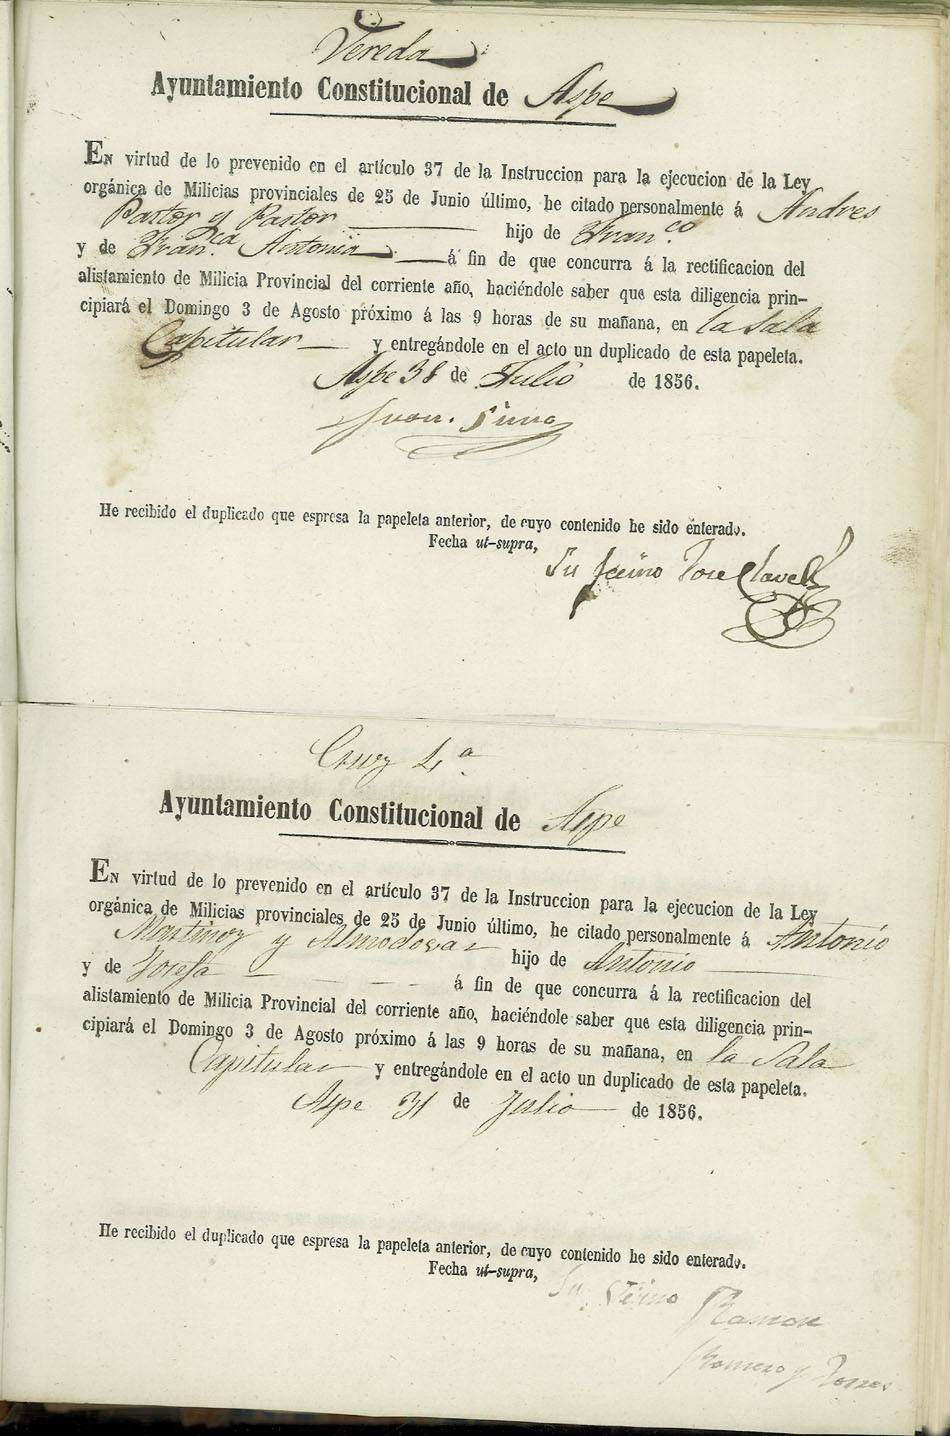 Vereda
Ayuntamiento Constitucional de Aspe
En virtud de lo prevenido en el artículo 37 de la Instruccion para la ejecucion de la Ley
orgánica de Milicias provinciales de 25 de Junio último, he citado personalmente á Andres
Pastor y Pastor hijo de Fran.co
y de Fran.ca Antonia á fin de que concurra á la rectificacion del
alistamiento de Milicia Provincial del corriente año, haciéndole saber que esta diligencia prin-
cipiará el Domingo 3 de Agosto próximo á las 9 horas de su mañana, en la Sala
Capitular y entregándole en el acto un duplicado de esta papeleta.
Aspe de Julio de 1856.
He recibido el duplicado que espresa la papeleta anterior, de cuyo contenido he sido enterado.
Fecha ut-supra,
Su Jose Clavel
Cruz 4.a
Ayuntamiento Constitucional de Aspe
En virtud de lo prevenido en el artículo 37 de la Instruccion para la ejecucion de la Ley
orgánica de Milicias provinciales de 25 de Junio último, he citado personalmente á Antonio
Martinez y Almodovar hijo de Antonio
y de Josefa á fin de que concurra á la rectificacion del
alistamiento de Milicia Provincial del corriente año, haciéndole saber que esta diligencia prin-
cipiará el Domingo 3 de Agosto próximo á las 9 horas de su mañana, en la Sala
Capitular y entregándole en el acto un duplicado de esta papeleta.
Aspe 31 de Julio de 1856.
He recibido el duplicado que espresa la papeleta anterior, de cuyo contenido he sido enterado.
Fecha ut-supra,
Su Ramon
Romero y Torres